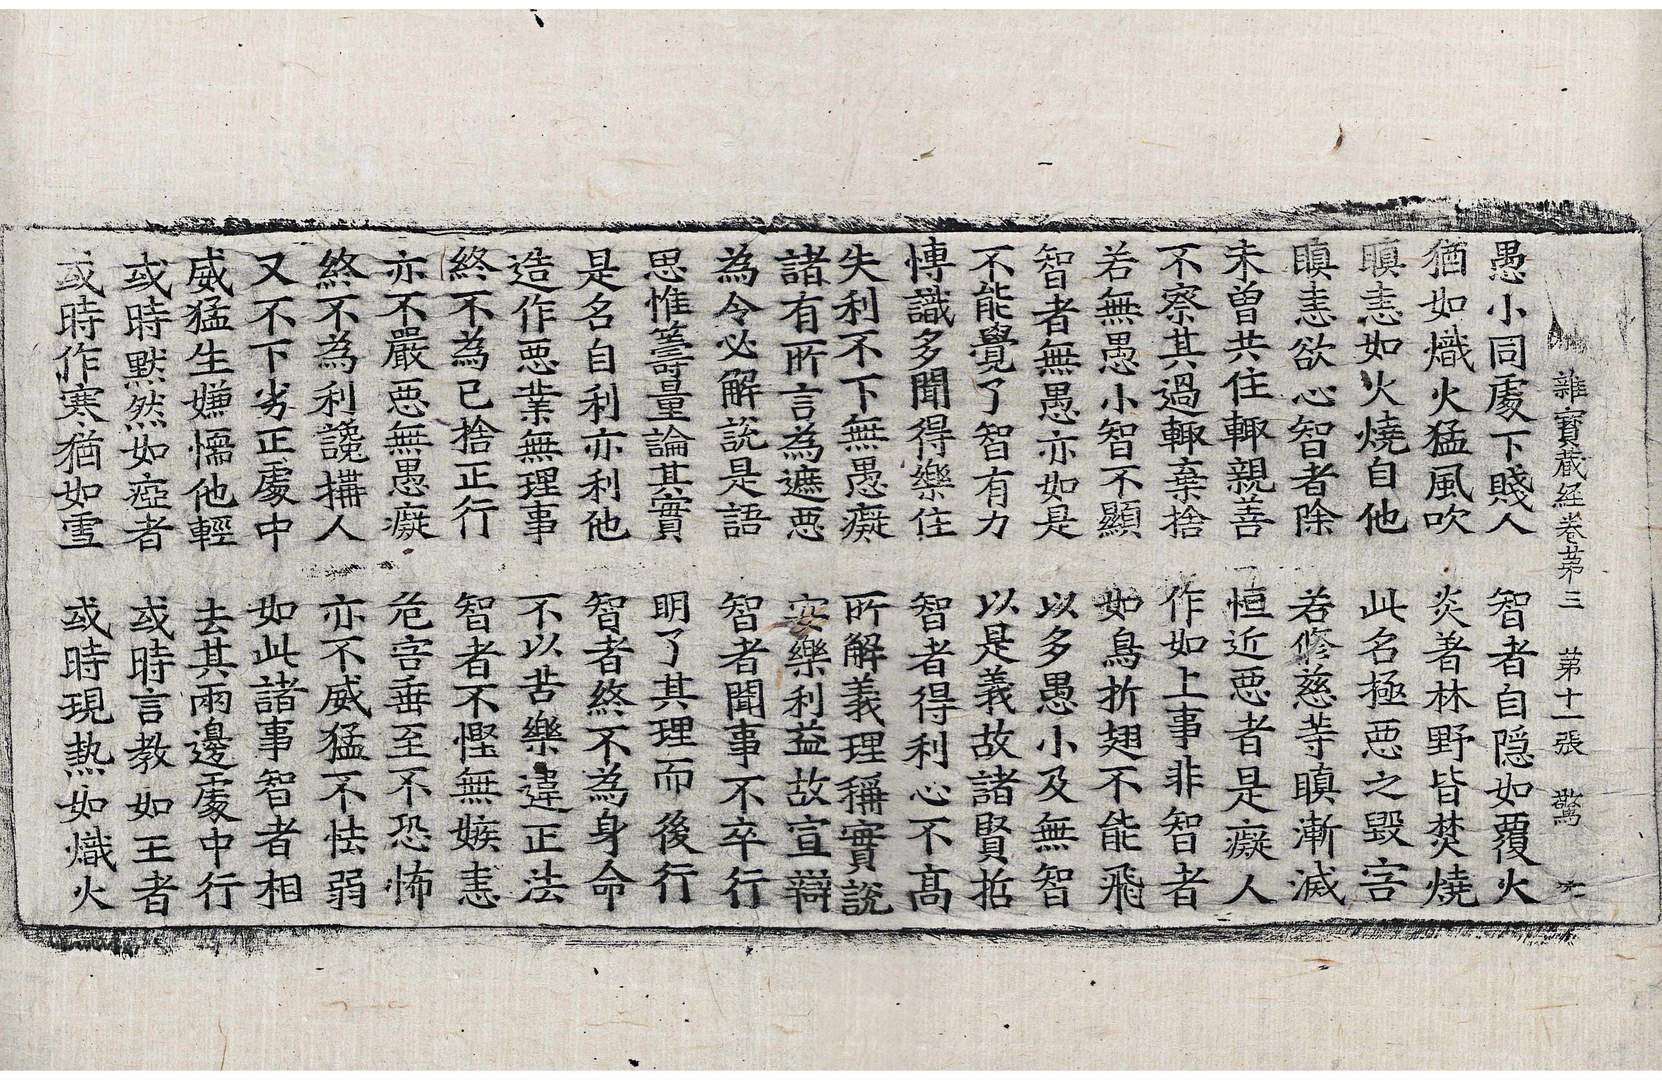 雜寶蔵経卷苐三 苐十一張 驚
愚小同處下賤人 智者自隐如覆火
猶如熾火猛風吹 炎著林野皆焚燒
瞋恚如火燒自他 此名極惡之毀害
瞋恚欲心智者除 若修慈等瞋漸滅
未曽共住輙親善 恒近惡者是癡人
不察其過輙棄捨 作如上事非智者
若無愚小智不顯 如鳥折翅不能飛
智者無愚亦如是 以多愚小及無智
不能覺了智有力 以是義故諸賢哲
博識多聞得樂住 智者得利心不髙
失利不下無愚癡 所解義理稱實說
諸有所言為遮惡 安樂利益故宣辯
為令必解說是語 智者聞事不卒行
思惟籌量論其實 明了其理而後行
是名自利亦利他 智者終不為身命
造作惡業無理事 不以苦樂違正法
終不為己捨正行 智者不慳無嫉恚
亦不嚴惡無愚癡 危害垂至不恐怖
終不為利讒搆人 亦不威猛不怯弱
又不下劣正處中 如此諸事智者相
威猛生嫌懦他輕 去其兩邊處中行
或時默然如瘂者 或時言教如王者
或時作寒猶如雪 或時現熱如熾火